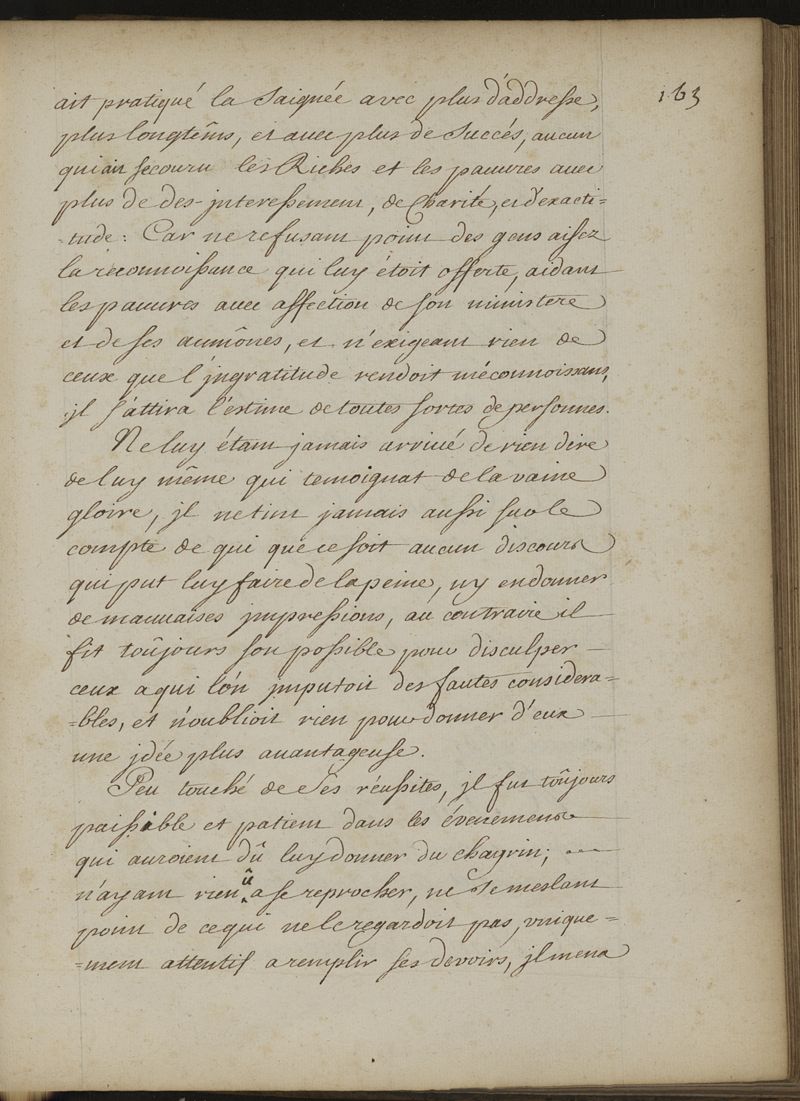 163
ait pratiqué la Saignée avec plus d'addresse,
plus longtêms, et avec plus de Succés, aucun
qui ait secouru les Riches et les pauvres avec
plus de des-jnteressement, de Charité, et d'exacti=
=tude : Car ne refusant point des gens aisez
la reconnoissance qui luy étoit offerte, aidant
les pauvres avec affection de son ministere
et de ses aumônes, et n'exigeant rien de
ceux que l'jngratitude rendoit méconnoissans,
jl s'attira l'estime de toutes sortes de personnes.
Ne luy étant jamais arrivé de rien dire
de luy même qui temoignat de la vaine
gloire, jl ne tint jamais aussi sur le
compte de qui que ce soit aucun discours
qui put luy faire de la peine, ny en donner
de mauvaises jmpressions, au contraire il
fit toûjours son possible pour disculper
ceux a qui l'on jmputoit des fautes considera=
=bles, et n'oublioit rien pour donner d'eux
une jdée plus avantageuse.
Peu touché de Ses réussites, jl fut toûjours
paissible et patient dans les évenemens
qui auroient dû luy donner du chagrin;
n'ayant rien û a se reprocher, ne Se meslant
point de ce qui ne le regardoit pas, vnique=
=ment attentif a remplir ses devoirs, jl mena